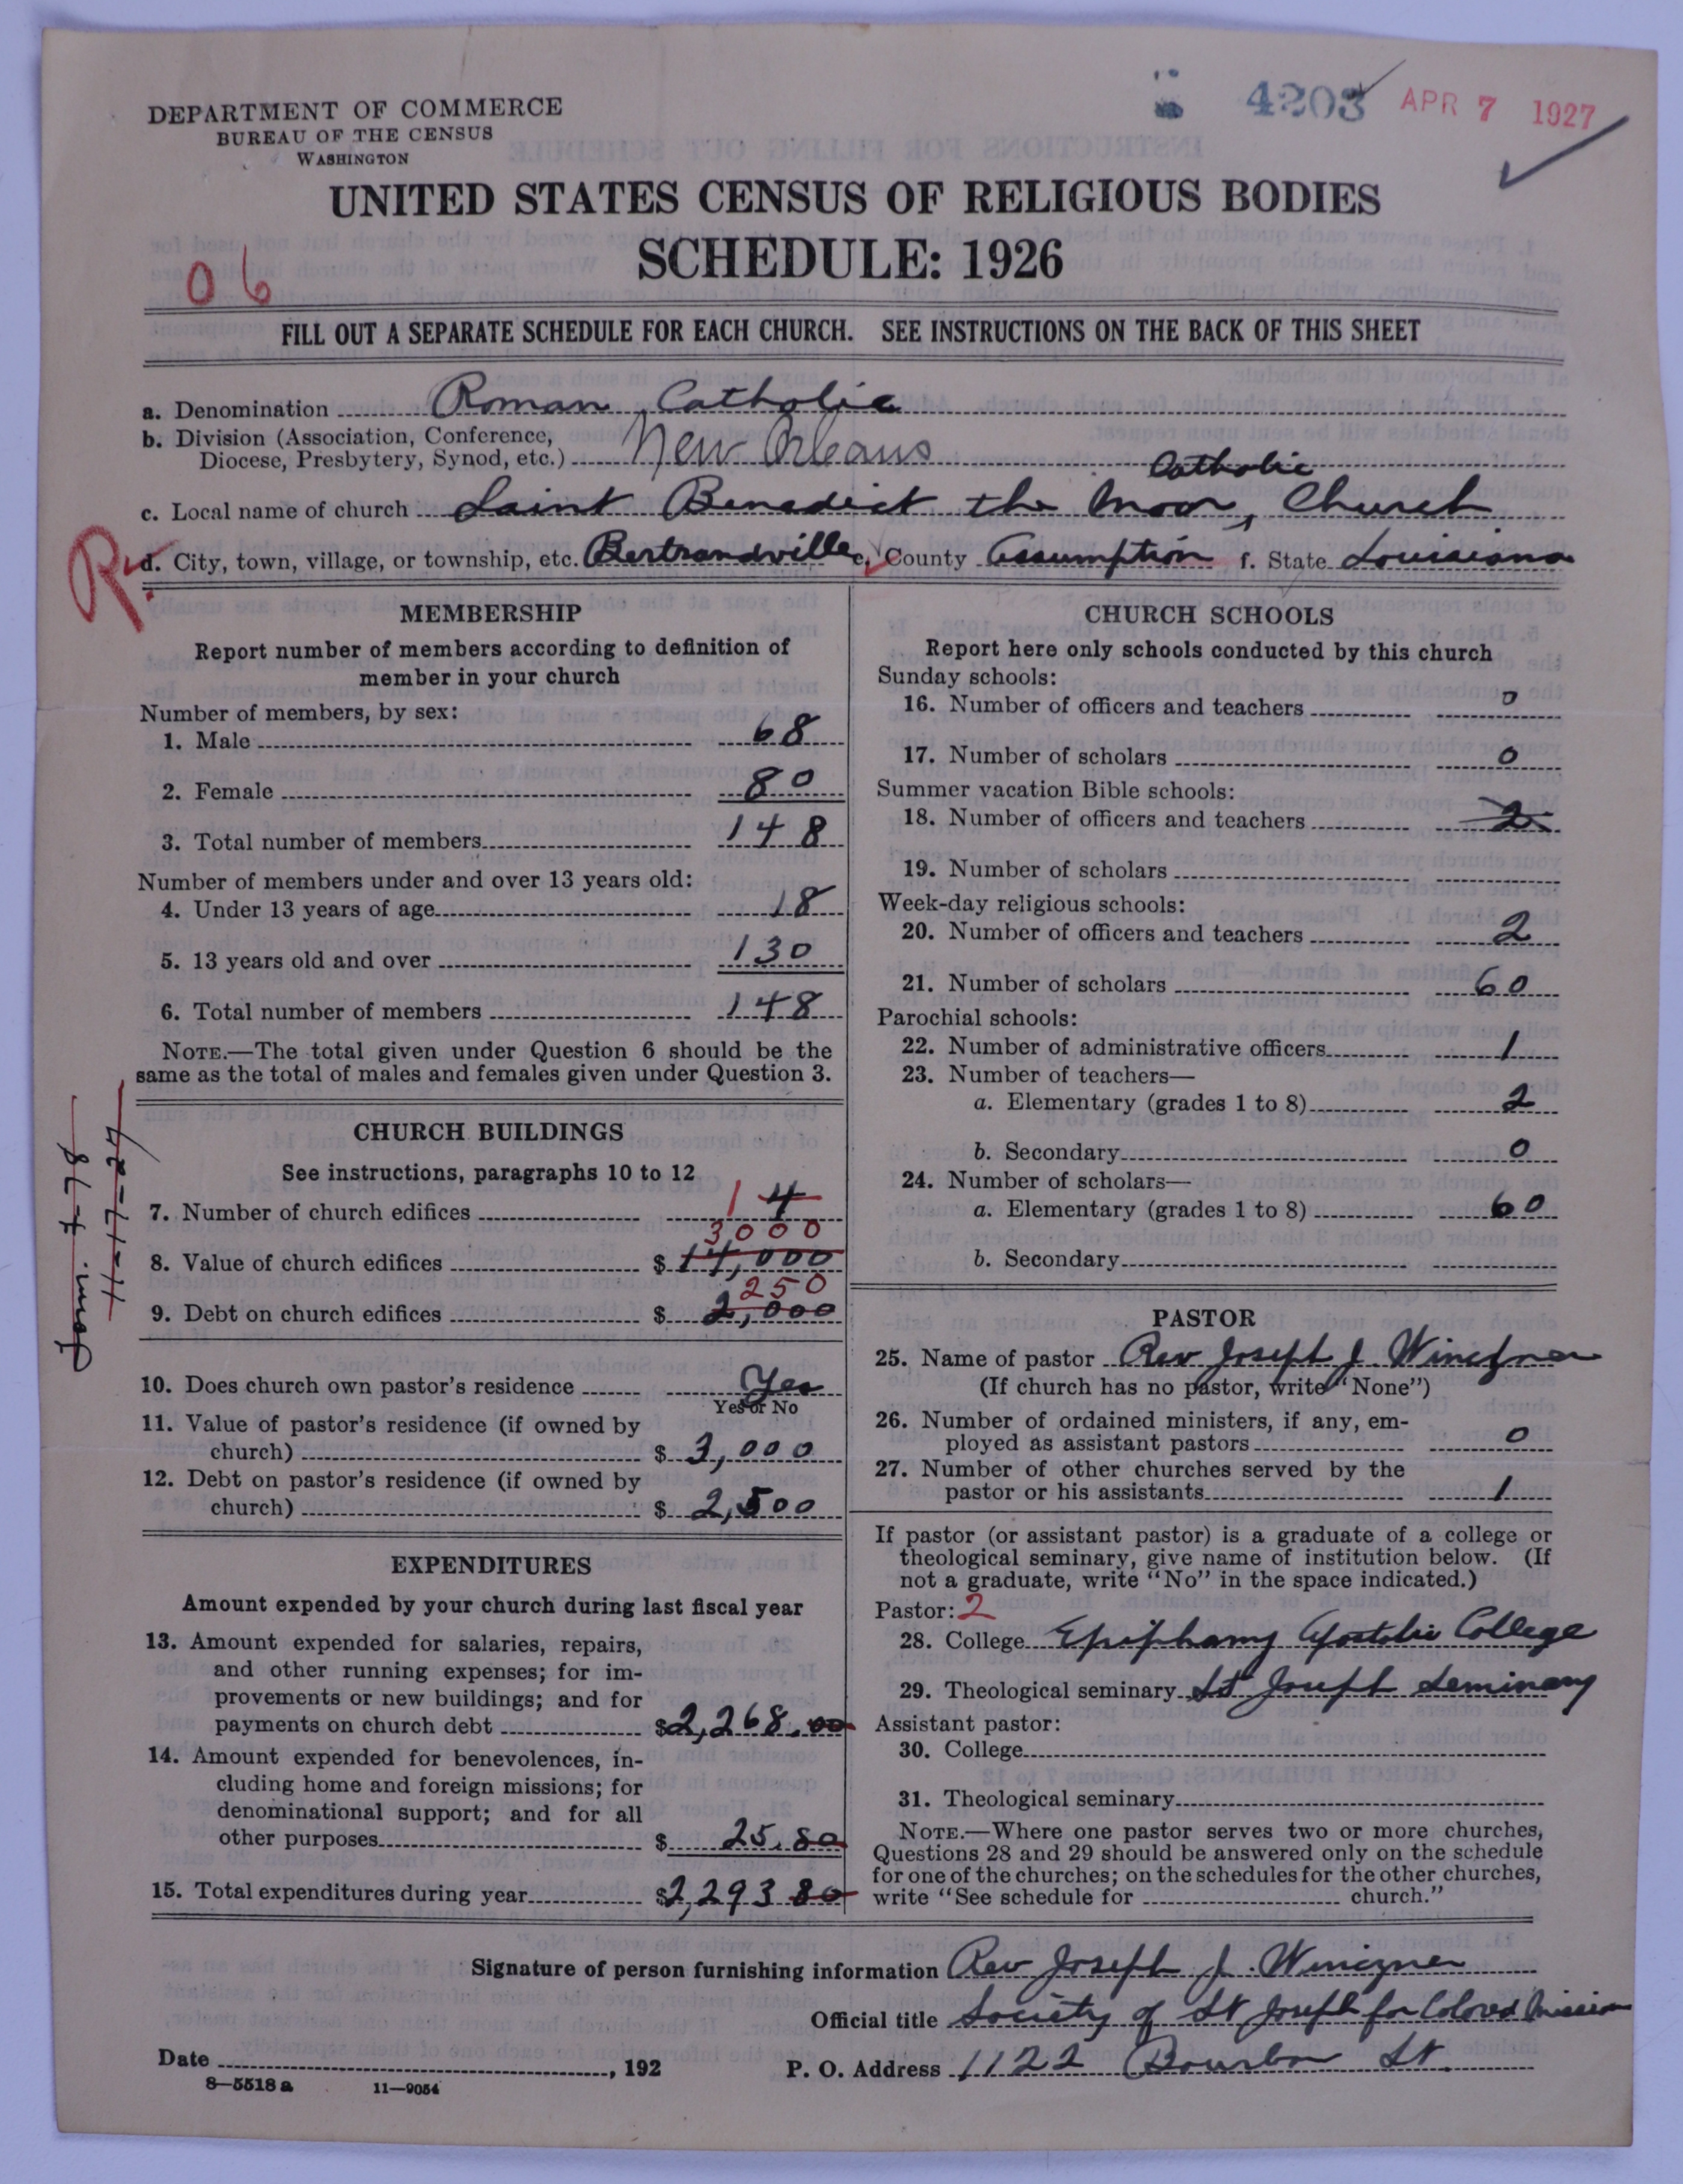 4203 APR 7 1927
DEPARTMENT OF COMMERCE
BUREAU OF THE CENSUS
WASHINGTON
UNITED STATES CENSUS OF RELIGIOUS BODIES
SCHEDULE: 1926
06
FILL OUT A SEPARATE SCHEDULE FOR EACH CHURCH. SEE INSTRUCTIONS ON THE BACK OF THIS SHEET
a. Denomination Roman Catholic
b. Division (Association, Conference,
Diocese, Presbytery, Synod, etc.) New Orleans
Catholic
c. Local name of church Saint Benedict the Moor, Church
R.
d. City, town, village, or township, etc. Bertrandville e. County Assumption f. State Louisiana
MEMBERSHIP
Report number of members according to definition of
member in your church
Number of members, by sex:
1. Male 68
2. Female 80
3. Total number of members 148
Number of members under and over 13 years old:
4. Under 13 years of age 18
5. 13 years old and over 130
6. Total number of members 148
NOTE.—The total given under Question 6 should be the
same as the total of males and females given under Question 3.
CHURCH BUILDINGS
See instructions, paragraphs 10 to 12
7. Number of church edifices 1 4
3000
8. Value of church edifices $ 14,000
250
9. Debt on church edifices $ 2,000
11-17-27
10. Does church own pastor's residence Yes
Yes or No
11. Value of pastor's residence (if owned by
church) $ 3,000
12. Debt on pastor's residence (if owned by
church) $ 2,500
EXPENDITURES
Amount expended by your church during last fiscal year
13. Amount expended for salaries, repairs,
and other running expenses; for im-
provements or new buildings; and for
payments on church debt $2,268.00
14. Amount expended for benevolences, in-
cluding home and foreign missions; for
denominational support; and for all
other purposes $ 25.80
15. Total expenditures during year $2,293 80
CHURCH SCHOOLS
Report here only schools conducted by this church
Sunday schools:
16. Number of officers and teachers 0
17. Number of scholars 0
Summer vacation Bible schools:
18. Number of officers and teachers 2
19. Number of scholars
Week-day religious schools:
20. Number of officers and teachers 2
21. Number of scholars 60
Parochial schools:
22. Number of administrative officers 1
23. Number of teachers—
a. Elementary (grades 1 to 8) 2
b. Secondary 0
24. Number of scholars—
a. Elementary (grades 1 to 8) 60
b. Secondary
PASTOR
25. Name of pastor Rev Joseph J.
(If church has no pastor, write "None")
26. Number of ordained ministers, if any, em-
ployed as assistant pastors 0
27. Number of other churches served by the
pastor or his assistants 1
If pastor (or assistant pastor) is a graduate of a college or
theological seminary, give name of institution below. (If
not a graduate, write "No" in the space indicated.)
Pastor: 2
28. College Epiphany Apostolic College
29. Theological seminary St Joseph Seminary
Assistant pastor:
30. College
31. Theological seminary
NOTE.—Where one pastor serves two or more churches,
Questions 28 and 29 should be answered only on the schedule
for one of the churches; on the schedules for the other churches,
write "See schedule for church."
Signature of person furnishing information Rev Joseph J.
Official title Society of St Joseph for Colored Missions
Date , 192 P. O. Address 1122 Bourbon St.
8—5518a 11—9054